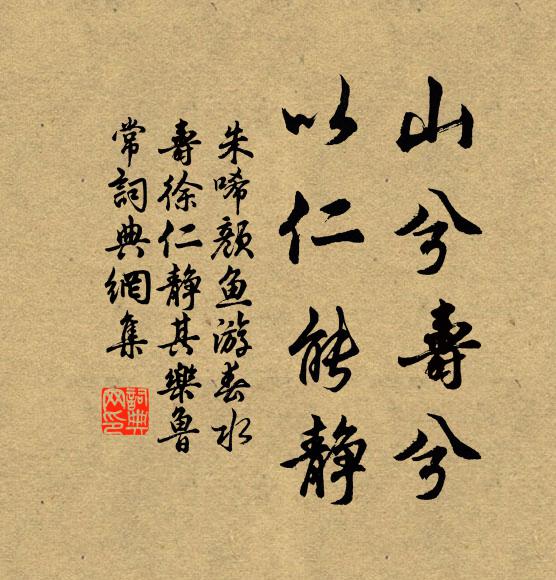 山兮壽兮
以仁能靜
朱唏顏魚游春水
壽徐仁靜其樂魯
常詞典網集
詞典網印